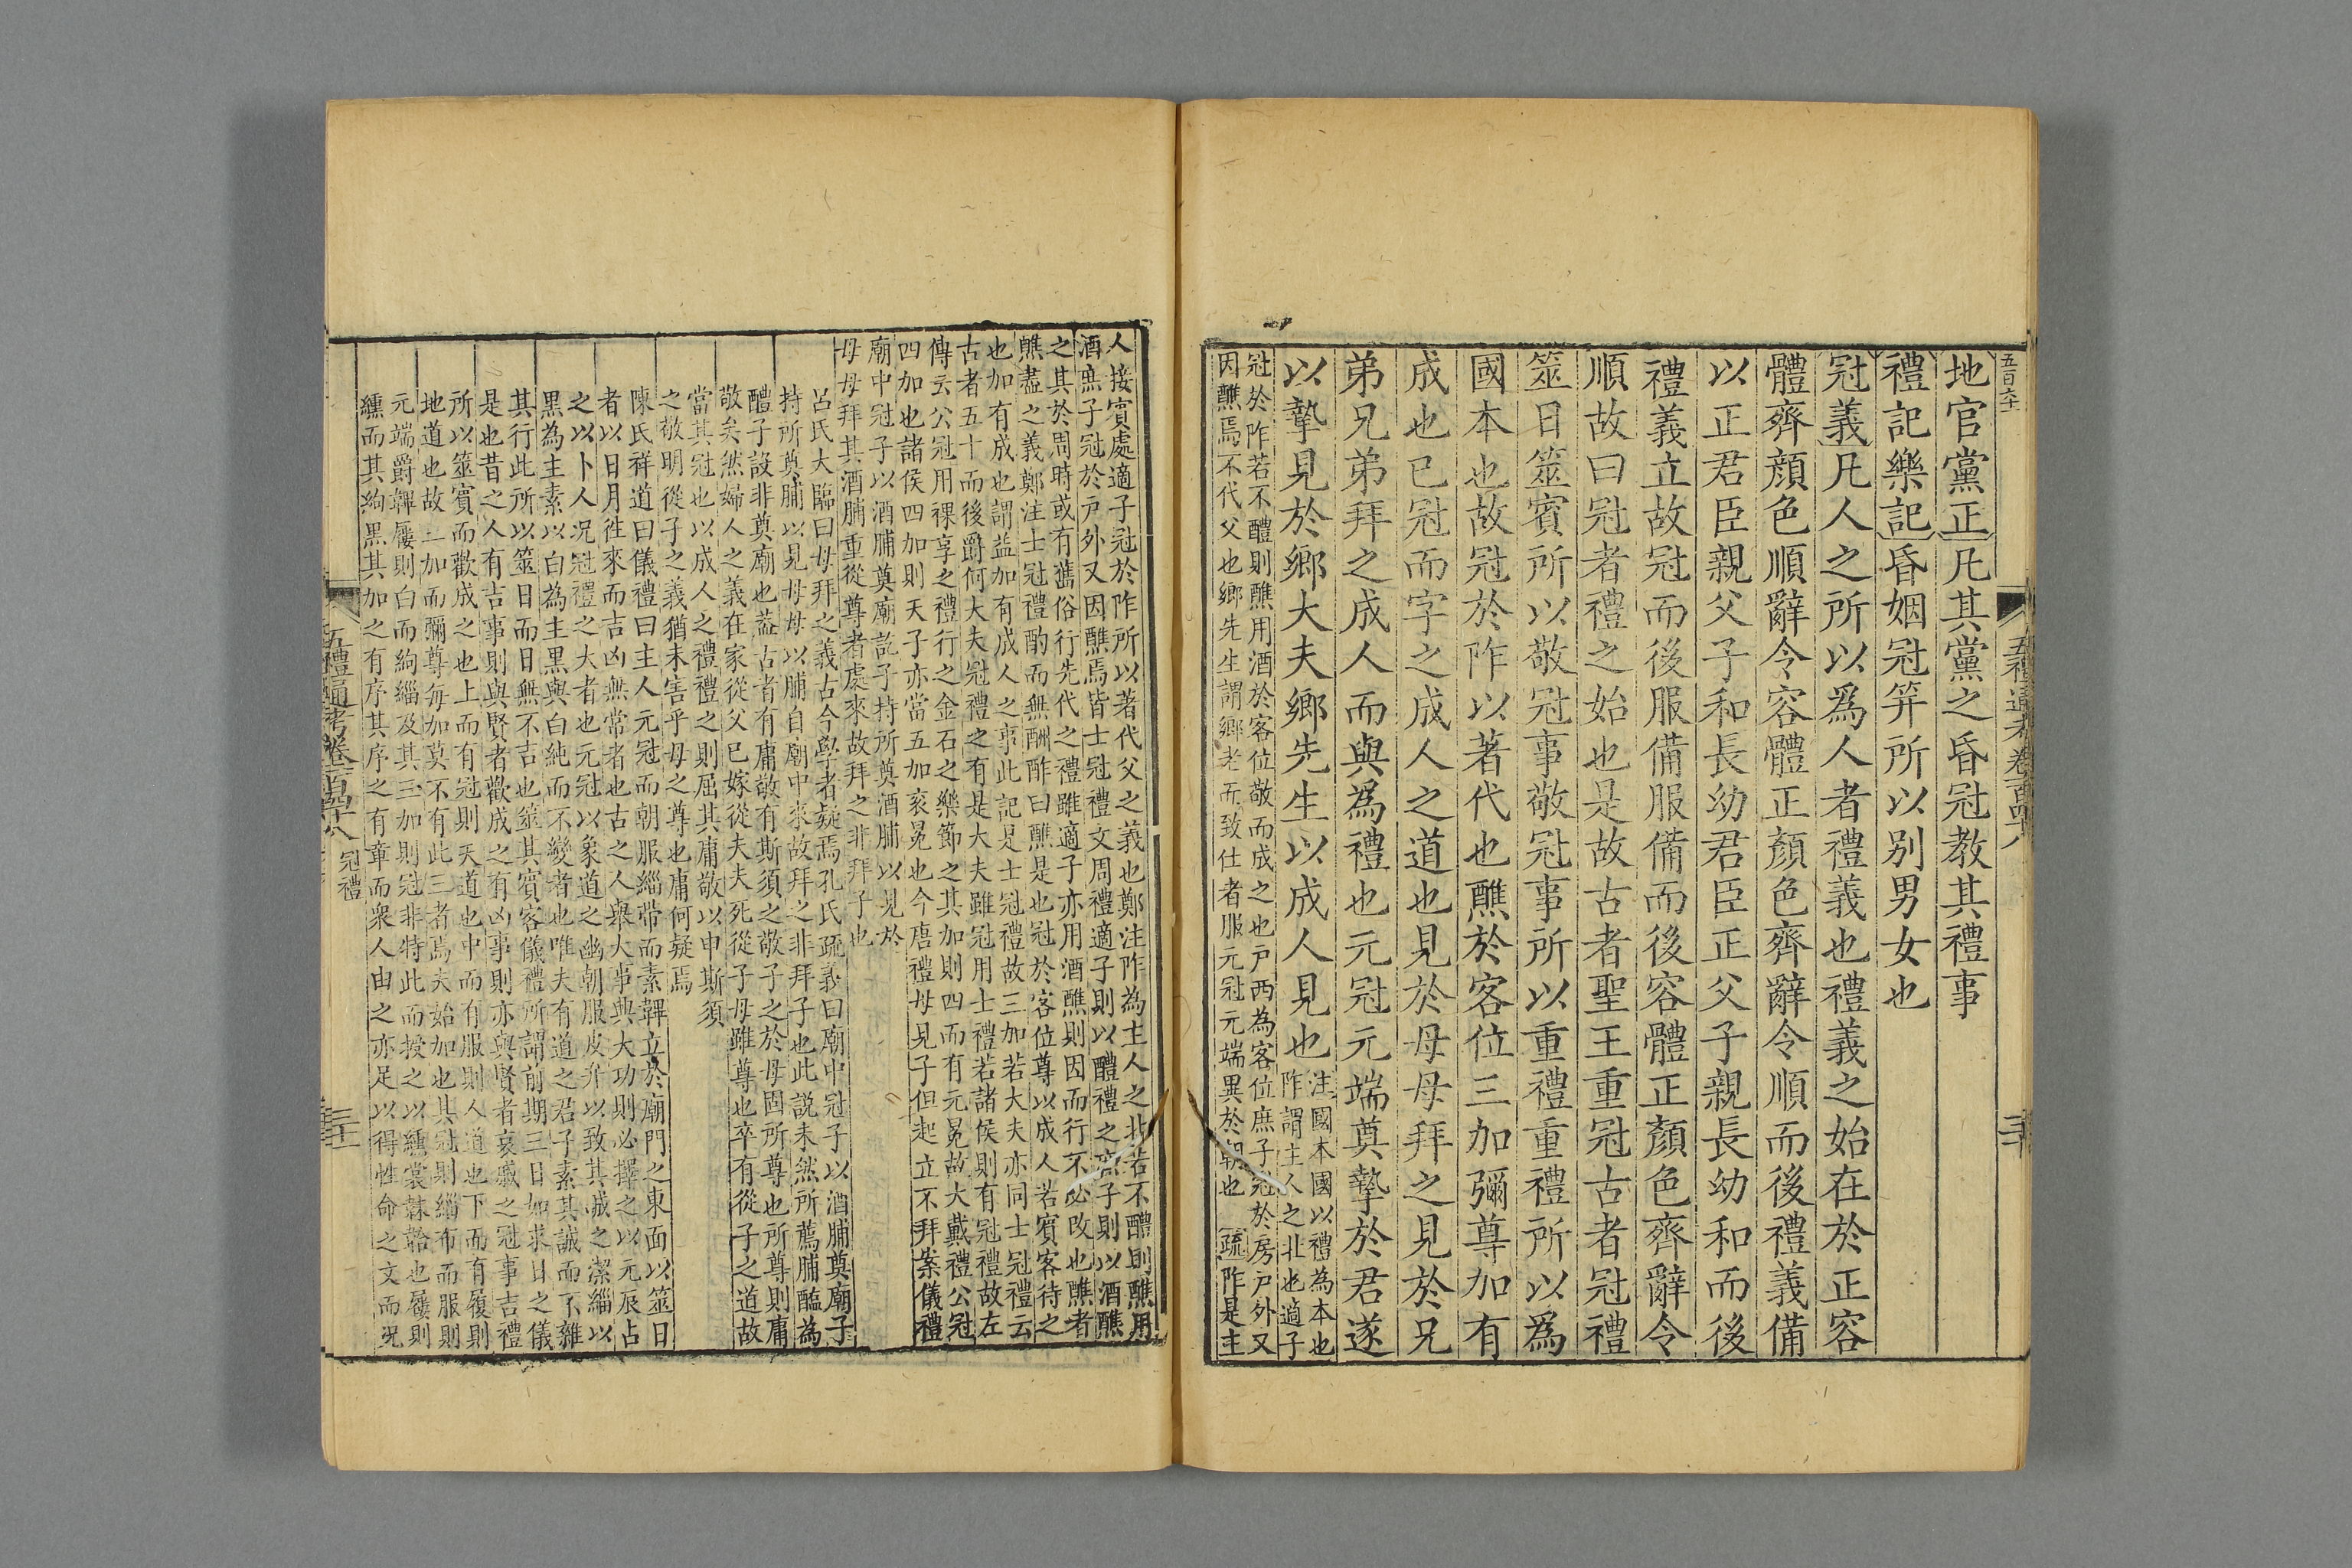 五百六十
五禮通考卷一百四十八
三十
地官黨正凡其黨之昏冠教其禮事
禮記樂記昏姻冠笄所以別男女也
冠義凡人之所以爲人者禮義也禮義之始在於正容
體齊顏色順辭令容體正顏色齊辭令順而後禮義備
以正君臣親父子和長幼君臣正父子親長幼和而後
禮義立故冠而後服備服備而後容體正顏色齊辭令
順故曰冠者禮之始也是故古者聖王重冠古者冠禮
筮日筮賓所以敬冠事敬冠事所以重禮重禮所以爲
國本也故冠於阼以著代也醮於客位三加彌尊加有
成也已冠而字之成人之道也見於母母拜之見於兄
弟兄弟拜之成人而與為禮也元冠元端奠摯於君遂
以摯見於鄉大夫鄉先生以成人見也
注國本國以禮為本也
阼謂主人之北也適子
冠於阼若不醴則醮用酒於客位敬而成之也戶西為客位庶子冠於房戶外又
因醮焉不代父也鄉先生謂鄉老而致仕者服元冠元端異於朝也 疏阼是主
人接賓處適子冠於阼所以著代父之義也鄭注阼為主人之北若不醴則醮用
酒庶子冠於戶外又因醮焉皆士冠禮文周禮適子則以醴禮之庶子則以酒醮
之其於周時或有舊俗行先代之禮雖適子亦用酒醮則因而行不必改也醮者
醮盡之義鄭注士冠禮酌而無酬酢曰醮是也冠於客位尊以成人若賓客待之
也加有成也謂益加有成人之事此記是士冠禮故三加若大夫亦同士冠禮云
古者五十而後爵何大夫冠禮之有是大夫雖冠用士禮若諸侯則有冠禮故左
傳云公冠用祼享之禮行之金石之樂節之其加則四而有元冕故大戴禮公冠
四加也諸侯四加則天子亦當五加衮冕也今唐禮母見子但起立不拜案儀禮
廟中冠子以酒脯奠廟訖子持所奠酒脯以見於
母母拜其酒脯重從尊者處來故拜之非拜子也
呂氏大臨曰母拜之義古今學者疑焉孔氏疏義曰廟中冠子以酒脯奠廟子
持所奠脯以見母母以脯自廟中來故拜之非拜子也此說未然所薦脯醢為
醴子設非奠廟也蓋古者有庸敬有斯須之敬子之於母固所尊也所尊則庸
敬矣然婦人之義在家從父已嫁從夫夫死從子母雖尊也卒有從子之道故
當其冠也以成人之禮禮之則屈其庸敬以申斯須
之敬明從子之義猶未害乎母之尊也庸何疑焉
陳氏祥道曰儀禮曰主人元冠而朝服緇帶而素韠立於廟門之東面以筮日
者以日月徃來而吉凶無常者也古之人舉大事典大功則必擇之以元辰占
之以卜人况冠禮之大者也元冠以象道之幽朝服皮弁以致其誠之潔緇以
黑為主素以白為主黑與白純而不變者也唯夫有道之君子素其誠而不雜
其行此所以筮日而日無不吉也筮其賓客儀禮所謂前期三日如求日之儀
是也昔之人有吉事則與賢者歡成之有凶事則亦與賢者哀戚之冠事吉禮
所以筮賓而歡成之也上而有冠則天道也中而有服則人道也下而有履則
地道也故三加而彌尊每加莫不有此三者焉夫始加也其冠則緇布而服則
元端爵韠屨則白而絇緇及其三加則冠非特此而授之以纁裳韎韐也屨則
纁而其絇黑其加之有序其序之有章而衆人由之亦足以得性命之文而况
五禮通考卷一百四十八 冠禮
三十一